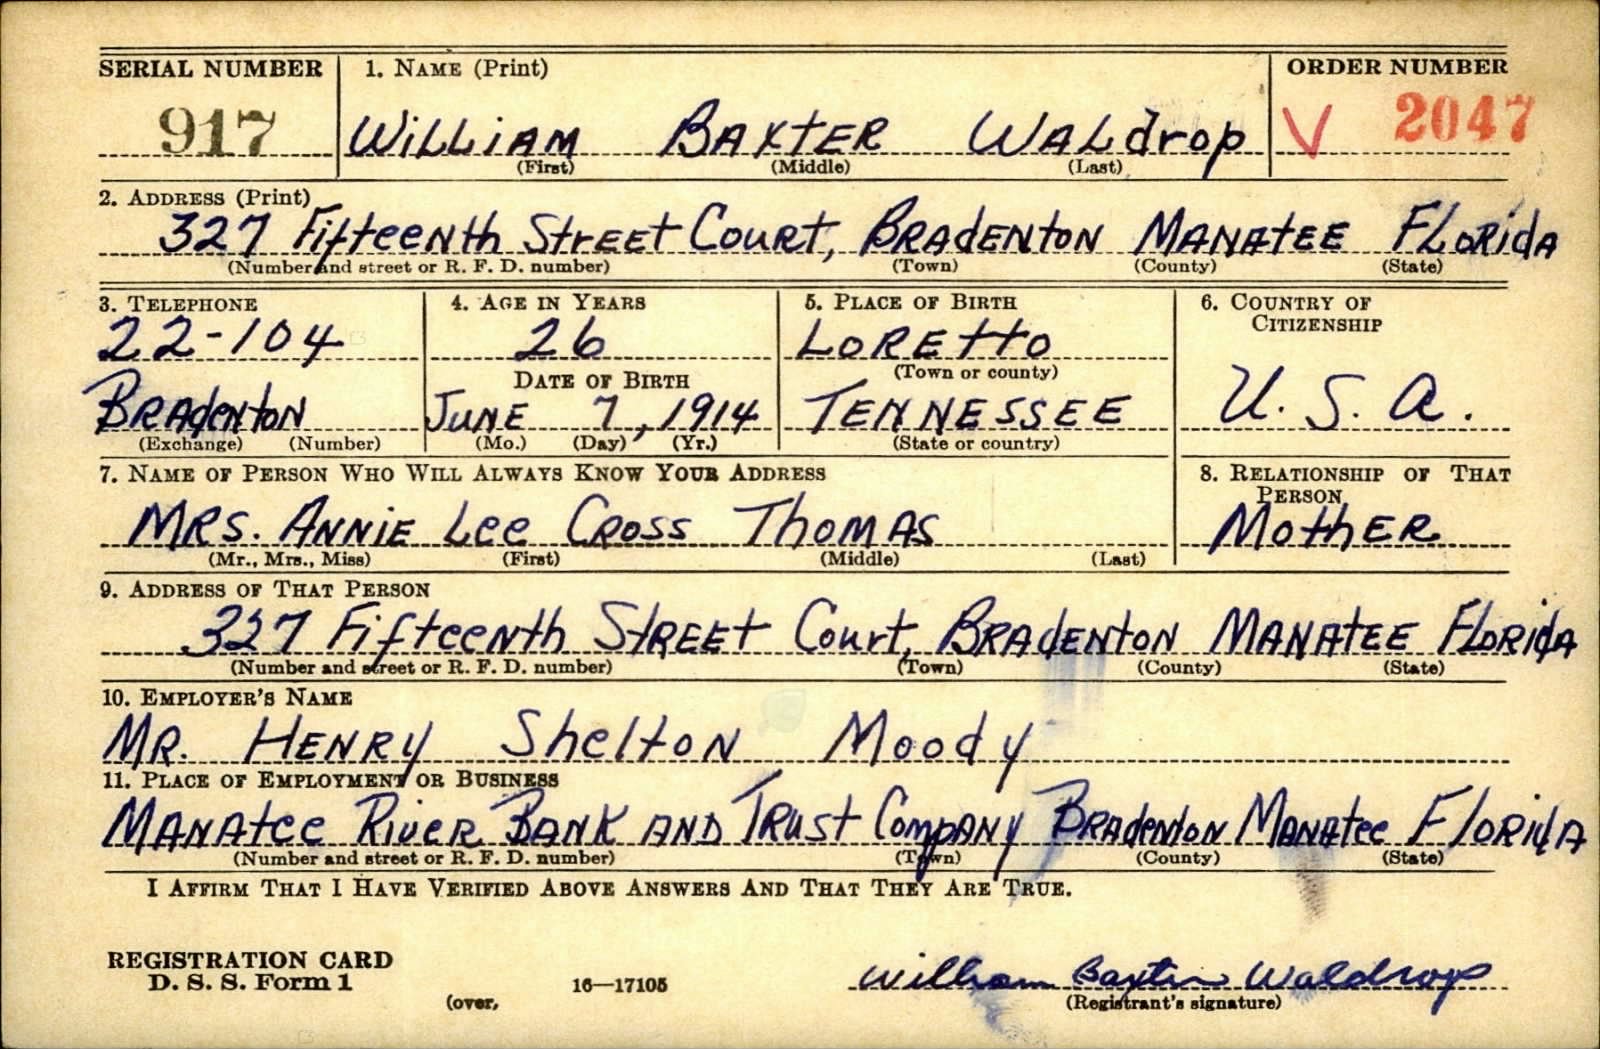 SERIAL NUMBER 1. NAME (Print) ORDER NUMBER
917 WILLIAM BAXTER WALdrop V 2047
(First) (Middle) (Last)
2. ADDRESS (Print)
327 Fifteenth Street Court, Bradenton Manatee Florida
(Number and street or R. F. D. number) (Town) (County) (State)
3. TELEPHONE 4. AGE IN YEARS 5. PLACE OF BIRTH 6. COUNTRY OF CITIZENSHIP
22-104 26 Loretto
DATE OF BIRTH (Town or county)
Bradenton June 7, 1914 Tennessee U. S. A.
(Exchange) (Number) (Mo.) (Day) (Yr.) (State or country)
7. NAME OF PERSON WHO WILL ALWAYS KNOW YOUR ADDRESS 8. RELATIONSHIP OF THAT PERSON
Mrs. Annie Lee Cross Thomas Mother
(Mr., Mrs., Miss) (First) (Middle) (Last)
9. ADDRESS OF THAT PERSON
327 Fifteenth Street Court, Bradenton Manatee Florida
(Number and street or R. F. D. number) (Town) (County) (State)
10. EMPLOYER'S NAME
Mr. Henry Shelton Moody
11. PLACE OF EMPLOYMENT OR BUSINESS
Manatee River Bank and Trust Company Bradenton Manatee Florida
(Number and street or R. F. D. number) (Town) (County) (State)
I AFFIRM THAT I HAVE VERIFIED ABOVE ANSWERS AND THAT THEY ARE TRUE.
REGISTRATION CARD
D. S. S. Form 1 16—17105 William Baxter Waldrop
(over) (Registrant's signature)